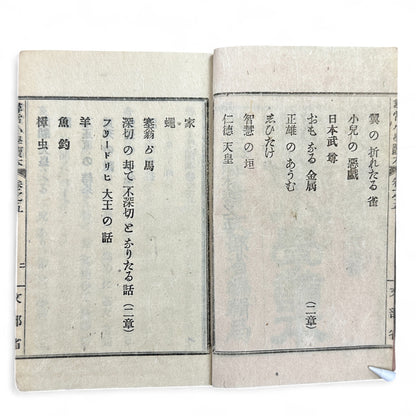 翼の折れたる雀
小兒の惡戯
日本武尊
おもなる金属 (二章)
正雄のあうむ
智慧の垣
仁徳天皇
家
蠅
塞翁が馬
深切の却て不深切となりたる話 (二章)
フリードリヒ大王の話
羊
魚釣
樟虫
尋常小學讀本 卷之五 二 文部省